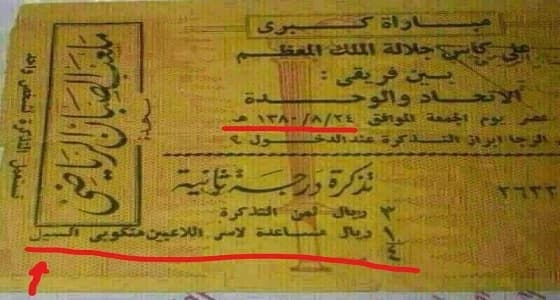 مباراة كبرى
على كاس جلالة الملك المعظم
بين فريقى :
الاتحاد والوحدة
عصر يوم الجمعة الموافق ١٣٨٠/٨/٢٤ هـ
الرجا ابراز التذكرة عند الدخول
تذكرة درجة ثانية
٢٦٢٢
٣ ريال ثمن التذكرة
١/٤ ريال مساعدة لاسر اللاعبين منكوبى السيل
ملعب الصبان الرياضى
بجدة
تستعمل التذكرة لشخص واحد